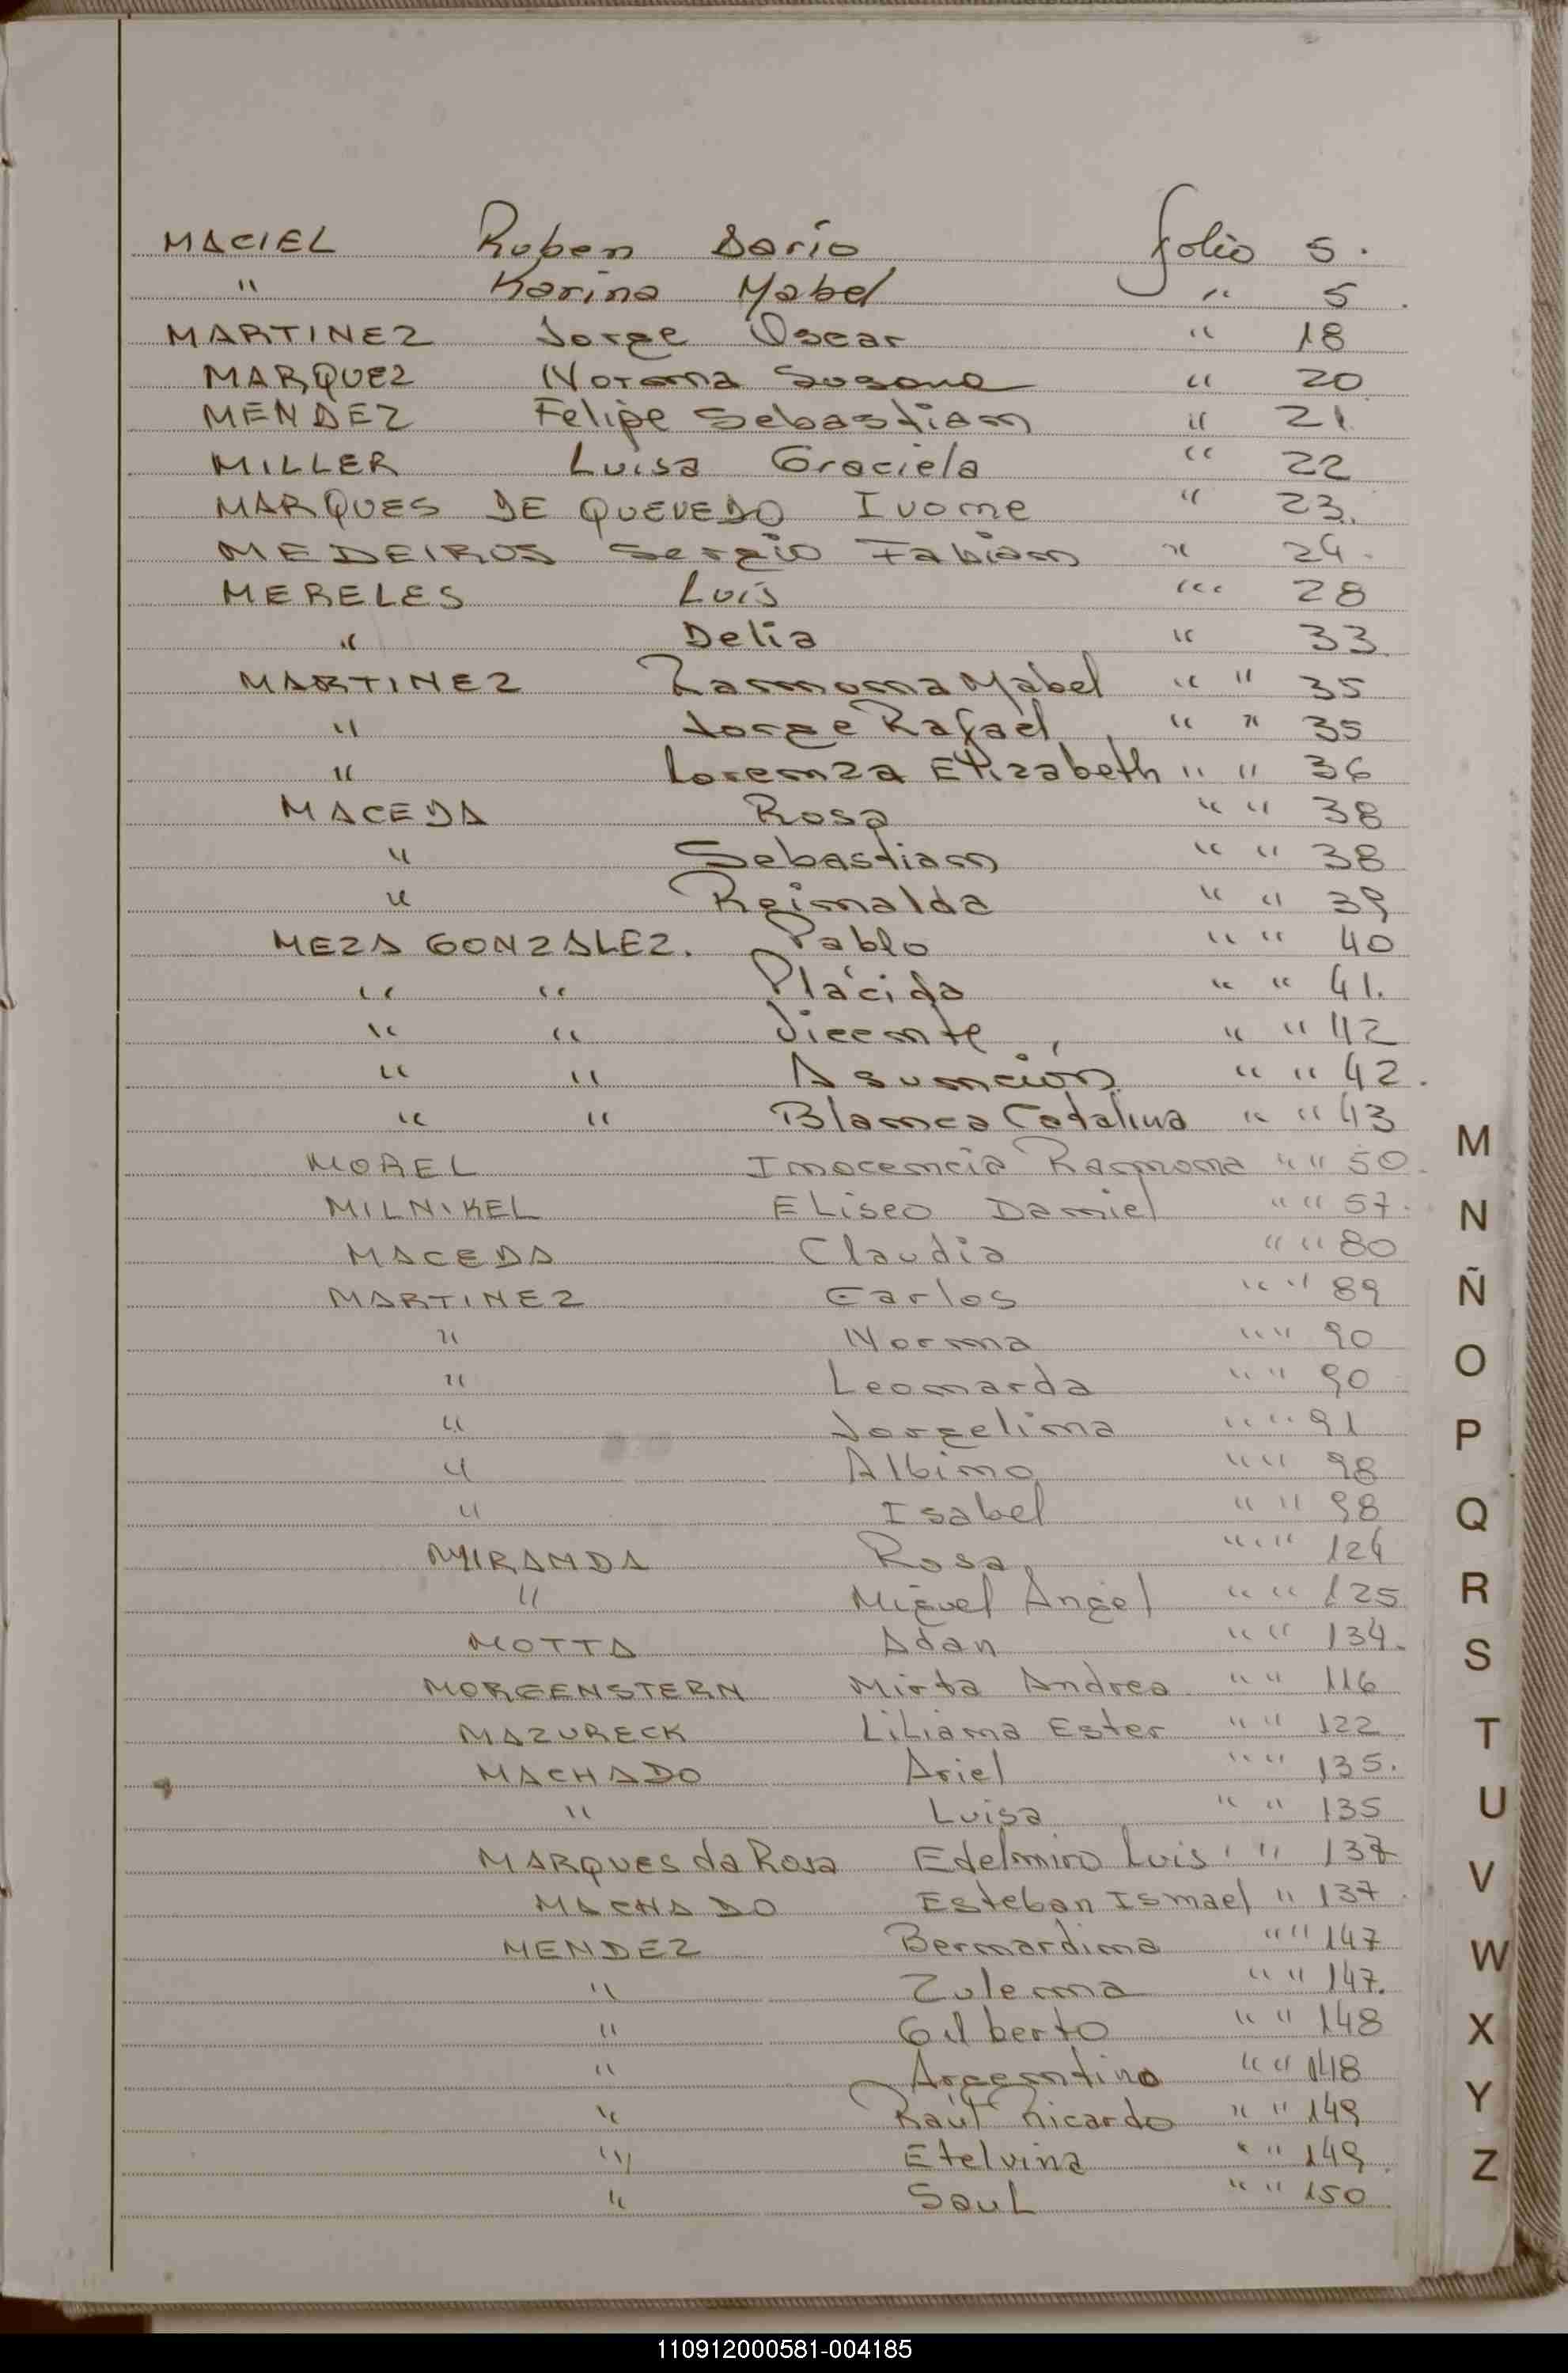 MACIEL Ruben Dario folio 5.
" Karina Mabel " 5.
MARTINEZ Jorge Oscar " 18
MARQUEZ Norma Susana " 20
MENDEZ Felipe Sebastian " 21
MILLER Luisa Graciela " 22
MARQUES DE QUEVEDO Ivone " 23.
MEDEIROS Sergio Fabian " 24.
MERELES Luis " 28
" Delia " 33.
MARTINEZ Ramona Mabel " " 35
" Jorge Rafael " " 35
" Lorenza Elizabeth " " 36
MACEDA Rosa " " 38
" Sebastian " " 38
" Reginalda " " 39
MEZA GONZALEZ. Pablo " " 40
" " Plácida " " 41.
" " Vicente " " 42
" " Asunción " " 42.
" " Blanca Catalina " " 43
MOREL Inocencia Ramona " " 50.
MILNIKEL Eliseo Daniel " " 57.
MACEDA Claudia " " 80
MARTINEZ Carlos " " 89
" Norma " " 90
" Leonarda " " 90
" Jorgelina " " 91
" Albino " " 98
" Isabel " " 98
MIRANDA Rosa " " 124
" Miguel Angel " " 125
MOTTA Adan " " 134.
MORGENSTERN Mirta Andrea " " 116
MAZURECK Liliana Ester " " 122
MACHADO Ariel " " 135.
" Luisa " " 135
MARQUES da Rosa Edelmiro Luis " " 137
MACHADO Esteban Ismael " 137.
MENDEZ Bernardina " " 147
" Zulema " " 147.
" Gilberto " " 148
" Argentina " " 148
" Raúl Ricardo " " 149
" Etelvina " " 149.
" Saul " " 150
M
N
Ñ
O
P
Q
R
S
T
U
V
W
X
Y
Z
110912000581-004185